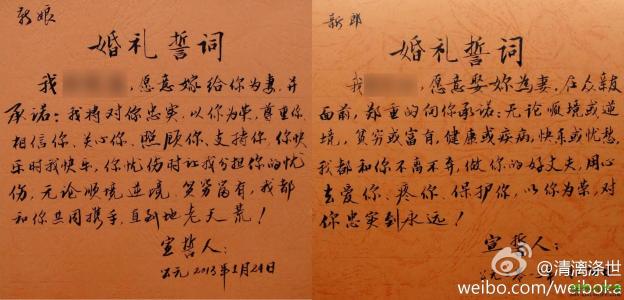 新娘
婚礼誓词
我 ，愿意嫁给你为妻，并
承诺：我将对你忠实，以你为荣，尊重你、
相信你、关心你、照顾你、支持你，你快
乐时我快乐，你忧伤时让我分担你的忧
伤，无论顺境逆境、贫穷富有，我都
和你共同携手，直到地老天荒！
宣誓人：
公元2013年1月24日
新郎
婚礼誓词
我 ，愿意娶妳为妻，在众亲友
面前，郑重的向你承诺：无论顺境或逆
境，贫穷或富有，健康或疾病，快乐或忧愁，
我都和你不离不弃，做你的好丈夫，用心
去爱你、疼你、保护你，以你为荣，对
你忠实到永远！
宣誓人：
公元
@清漓涤世
weibo.com/weiboka